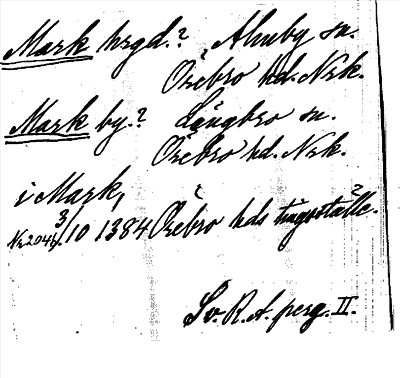 Mark hrgd.? Almby sn.
Örebro hd. Nrk.
Mark by.? Längbro sn.
Örebro hd. Nrk.
i Mark,
Nr 2046. 3/10 1384 Örebro hds tingsställe.
Sv. R. A. perg. II.